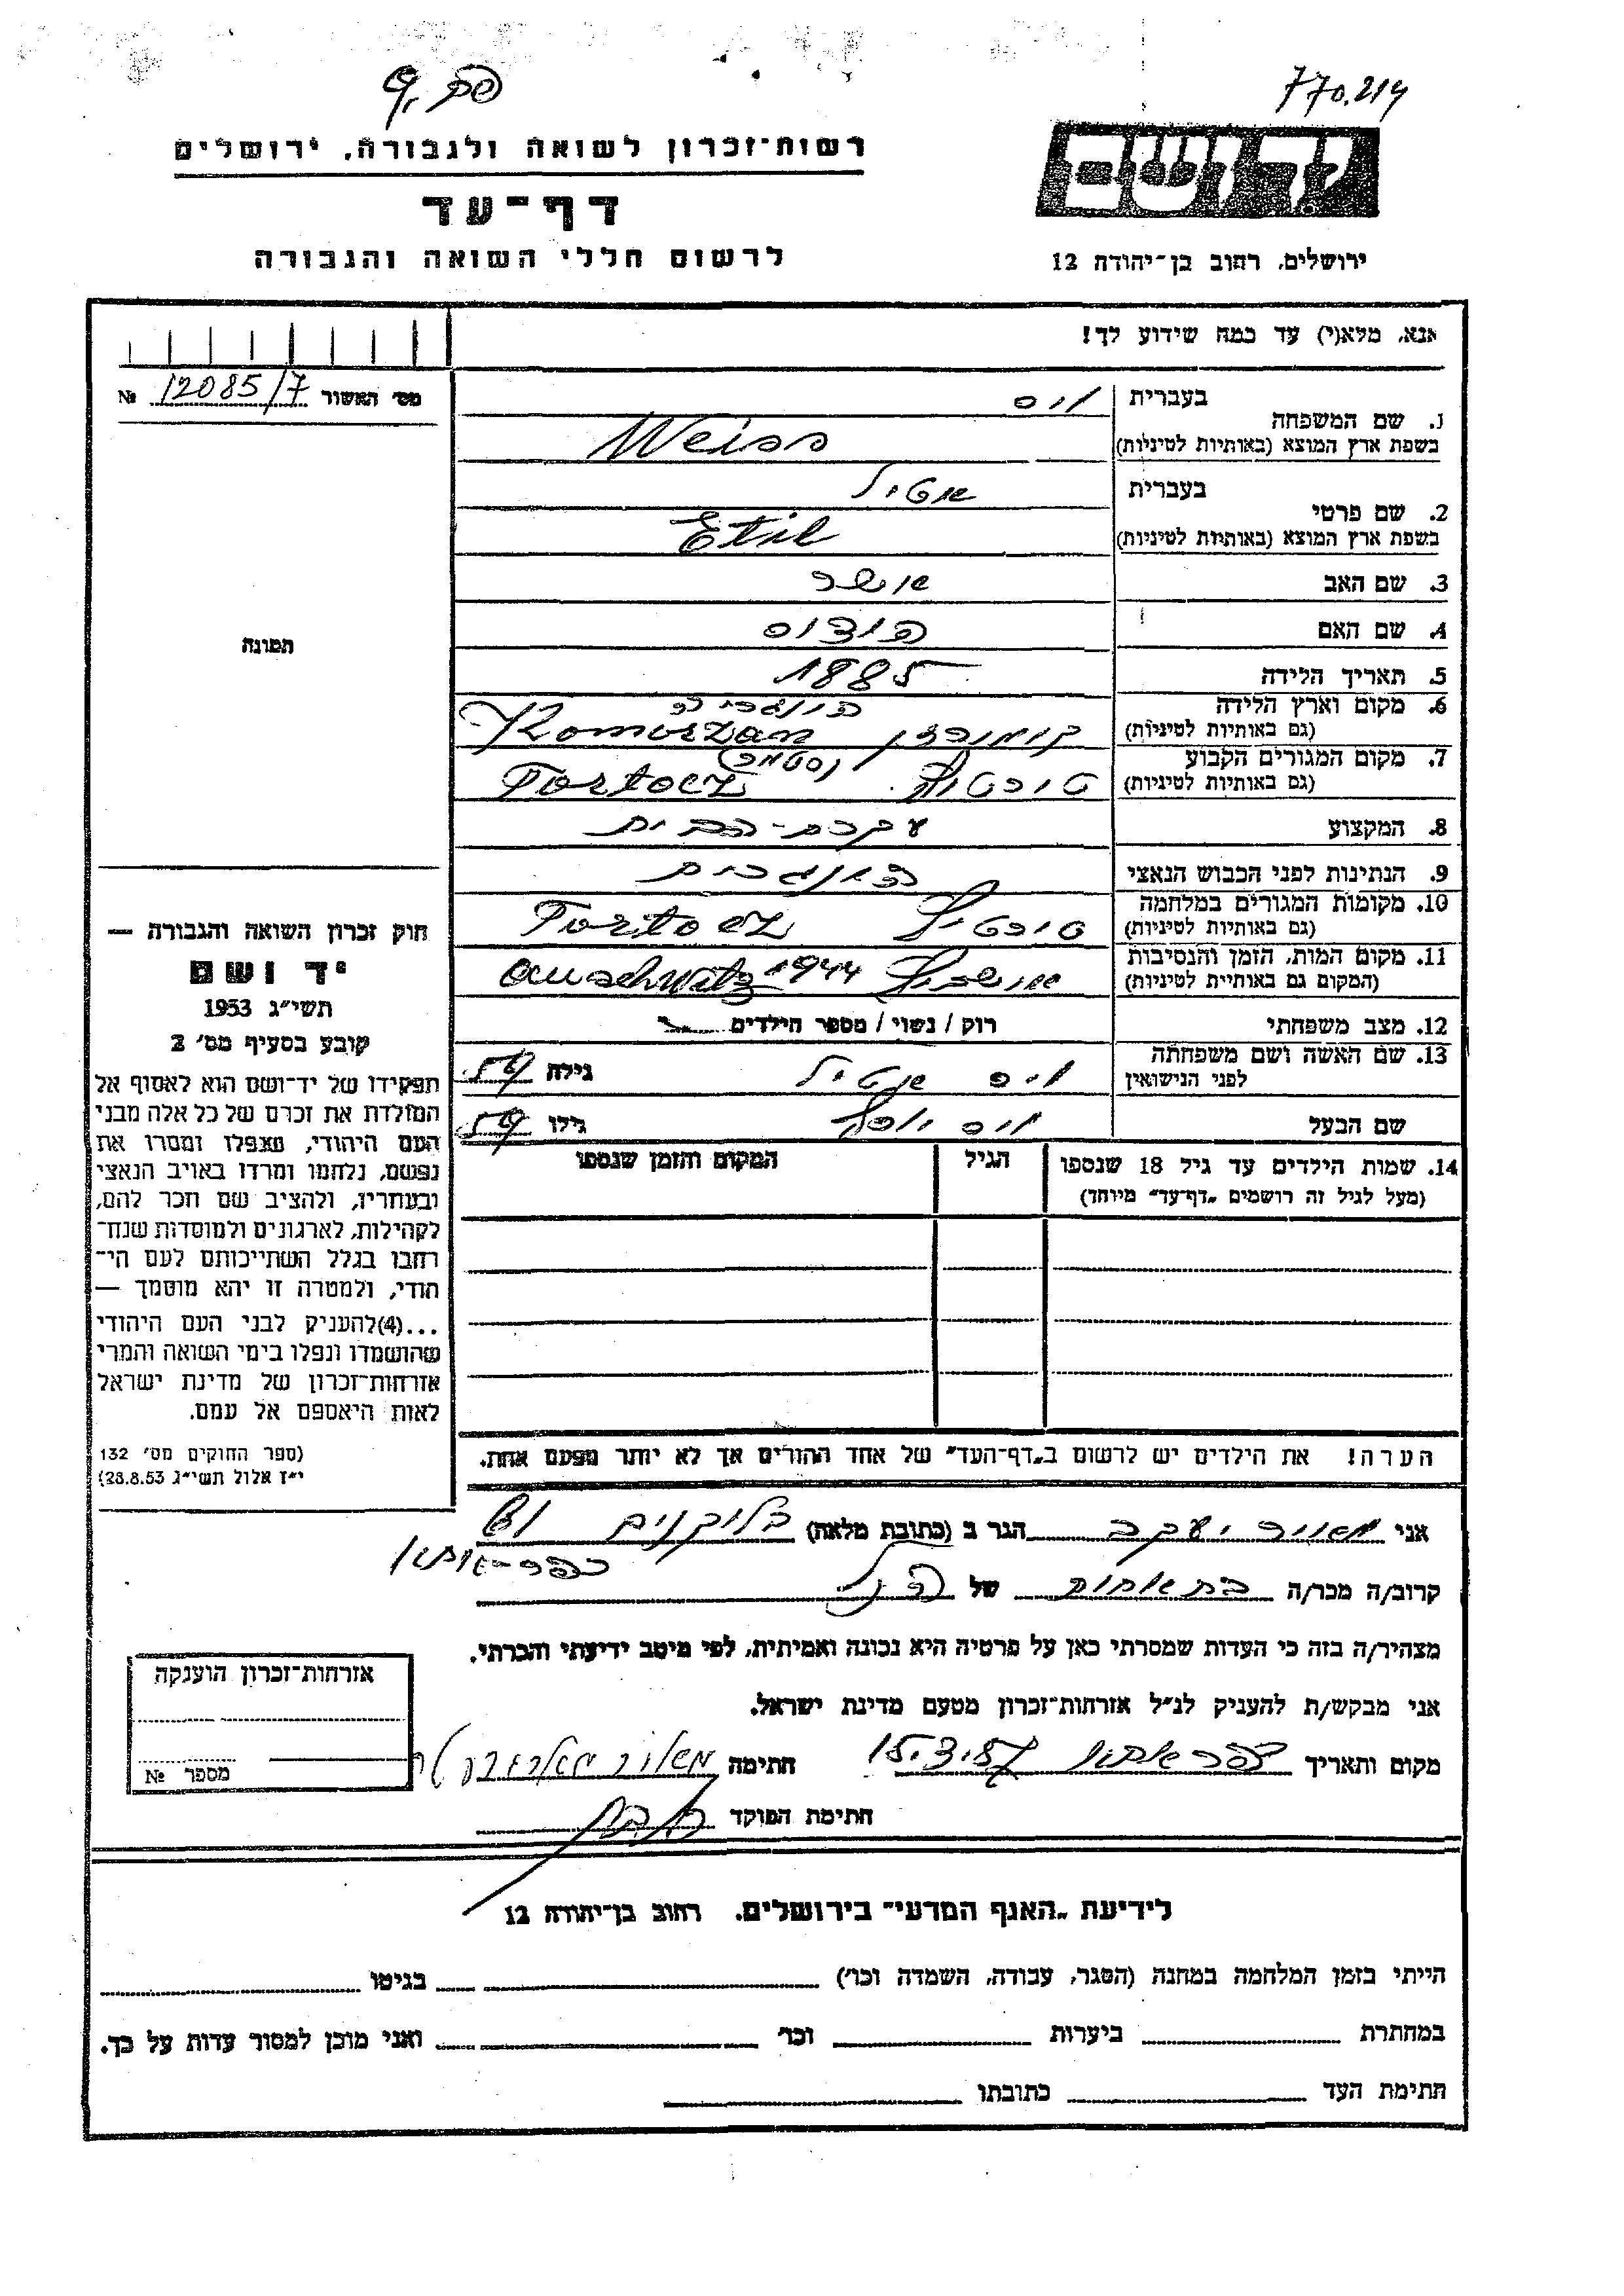 770.214
רשות־זכרון לשואה ולגבורה, ירושלים
דף־עד
לרשום חללי השואה והגבורה
ירושלים, רחוב בן־יהודה 12
אנא, מלא(י) עד כמה שידוע לך!
מס' האשור 12085/7 №
בעברית ויס
1. שם המשפחה
בשפת ארץ המוצא (באותיות לטיניות) Weiss
בעברית אטיל
2. שם פרטי
בשפת ארץ המוצא (באותיות לטיניות) Etil
3. שם האב אושר
4. שם האם הודוס
תמונה
5. תאריך הלידה 1885
6. מקום וארץ הלידה הונגריה
(גם באותיות לטיניות) קומורזן Komorzan
7. מקום המגורים הקבוע (סטמר)
(גם באותיות לטיניות) טורטוץ Tortoez
8. המקצוע עקרת-הבית
9. הנתינות לפני הכבוש הנאצי הונגרית
10. מקומות המגורים במלחמה
(גם באותיות לטיניות) Tortoez
11. מקום המות, הזמן והנסיבות
(המקום גם באותיית לטיניות) אושביץ 1944 Auschwitz
12. מצב משפחתי רוק / נשוי / מספר הילדים
13. שם האשה ושם משפחתה
לפני הנישואין ויס אטיל גילה 59
שם הבעל ויס יוסף גילו 59
14. שמות הילדים עד גיל 18 שנספו הגיל המקום והזמן שנספו
(מעל לגיל זה רושמים „דף־עד" מיוחד)
הערה! את הילדים יש לרשום ב„דף־העד" של אחד ההורים אך לא יותר מפעם אחת.
חוק זכרון השואה והגבורה —
יד ושם
תשי"ג 1953
קובע בסעיף מס' 2
תפקידו של יד־ושם הוא לאסוף אל
המולדת את זכרם של כל אלה מבני
העם היהודי, שנפלו ומסרו את
נפשם, נלחמו ומרדו באויב הנאצי
ובעוזריו, ולהציב שם וזכר להם,
לקהילות, לארגונים ולמוסדות שנח־
רבו בגלל השתייכותם לעם הי־
הודי, ולמטרה זו יהא מוסמך —
...(4)להעניק לבני העם היהודי
שהושמדו ונפלו בימי השואה והמרי
אזרחות־זכרון של מדינת ישראל
לאות היאספם אל עמם.
(ספר החוקים מס' 132
י"ז אלול תשי"ג 28.8.53)
אני מאור יעקב הגר ב (כתובת מלאה) בלוקנים
כפר-אתא
קרוב/ה מכר/ה בת אחות של הנ"ל
מצהיר/ה בזה כי העדות שמסרתי כאן על פרטיה היא נכונה ואמיתית, לפי מיטב ידיעתי והכרתי.
אני מבקש/ת להעניק לנ"ל אזרחות־זכרון מטעם מדינת ישראל.
מקום ותאריך כפר אתא חתימה
חתימת הפוקד
אזרחות־זכרון הוענקה
מספר №
לידיעת „האגף המדעי" בירושלים, רחוב בן־יהודה 12
הייתי בזמן המלחמה במחנה (הסגר, עבודה, השמדה וכו') בגיטו
במחתרת ביערות וכו' ואני מוכן למסור עדות על כך.
חתימת העד כתובתו